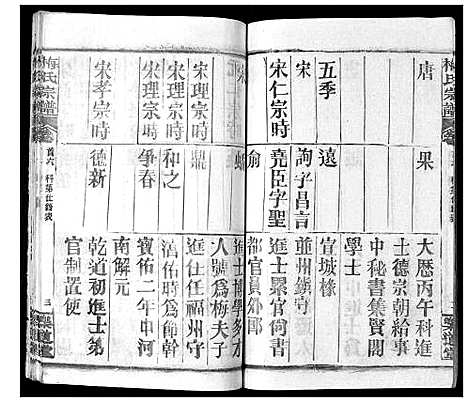 梅氏宗譜
唐
果
大曆丙午科進
士德宗朝給事
中秘書集賢閣
學士
五季
遠
宣城椽
詢子昌言
並州鎮守
宋仁宗時
堯臣字聖
俞
進士累官尚書
都官員外郎
進士博學多才
人號爲梅夫子
宋理宗時
鼎
進仕任福州守
宋理宗時
和之
寳佑二年中河
南解元
爭春
宋孝宗時
德新
乾道初進士第
官制置使
梅氏宗譜
首六
科第仕籍表
三
樂道堂